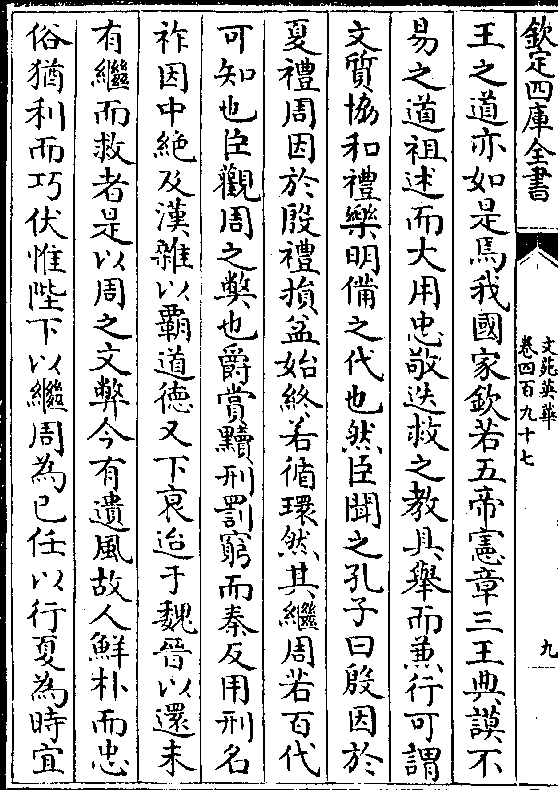 欽定四庫全書
文苑英華
卷四百九十七
九
王之道亦如是焉我國家欽若五帝憲章三王典謨不
易之道祖述而大用忠敬迭救之教具舉而兼行可謂
文質協和禮樂明備之代也然臣聞之孔子曰殷因於
夏禮周因於殷禮損益始終若循環然其繼周若百代
可知也臣觀周之弊也爵賞黷刑罰窮而秦反用刑名
祚因中絶及漢雜以霸道德又下衰迨于魏晉以還未
有繼而救者是以周之文弊今有遺風故人鮮朴而忠
俗猶利而巧伏惟陛下以繼周為已任以行夏為時宜